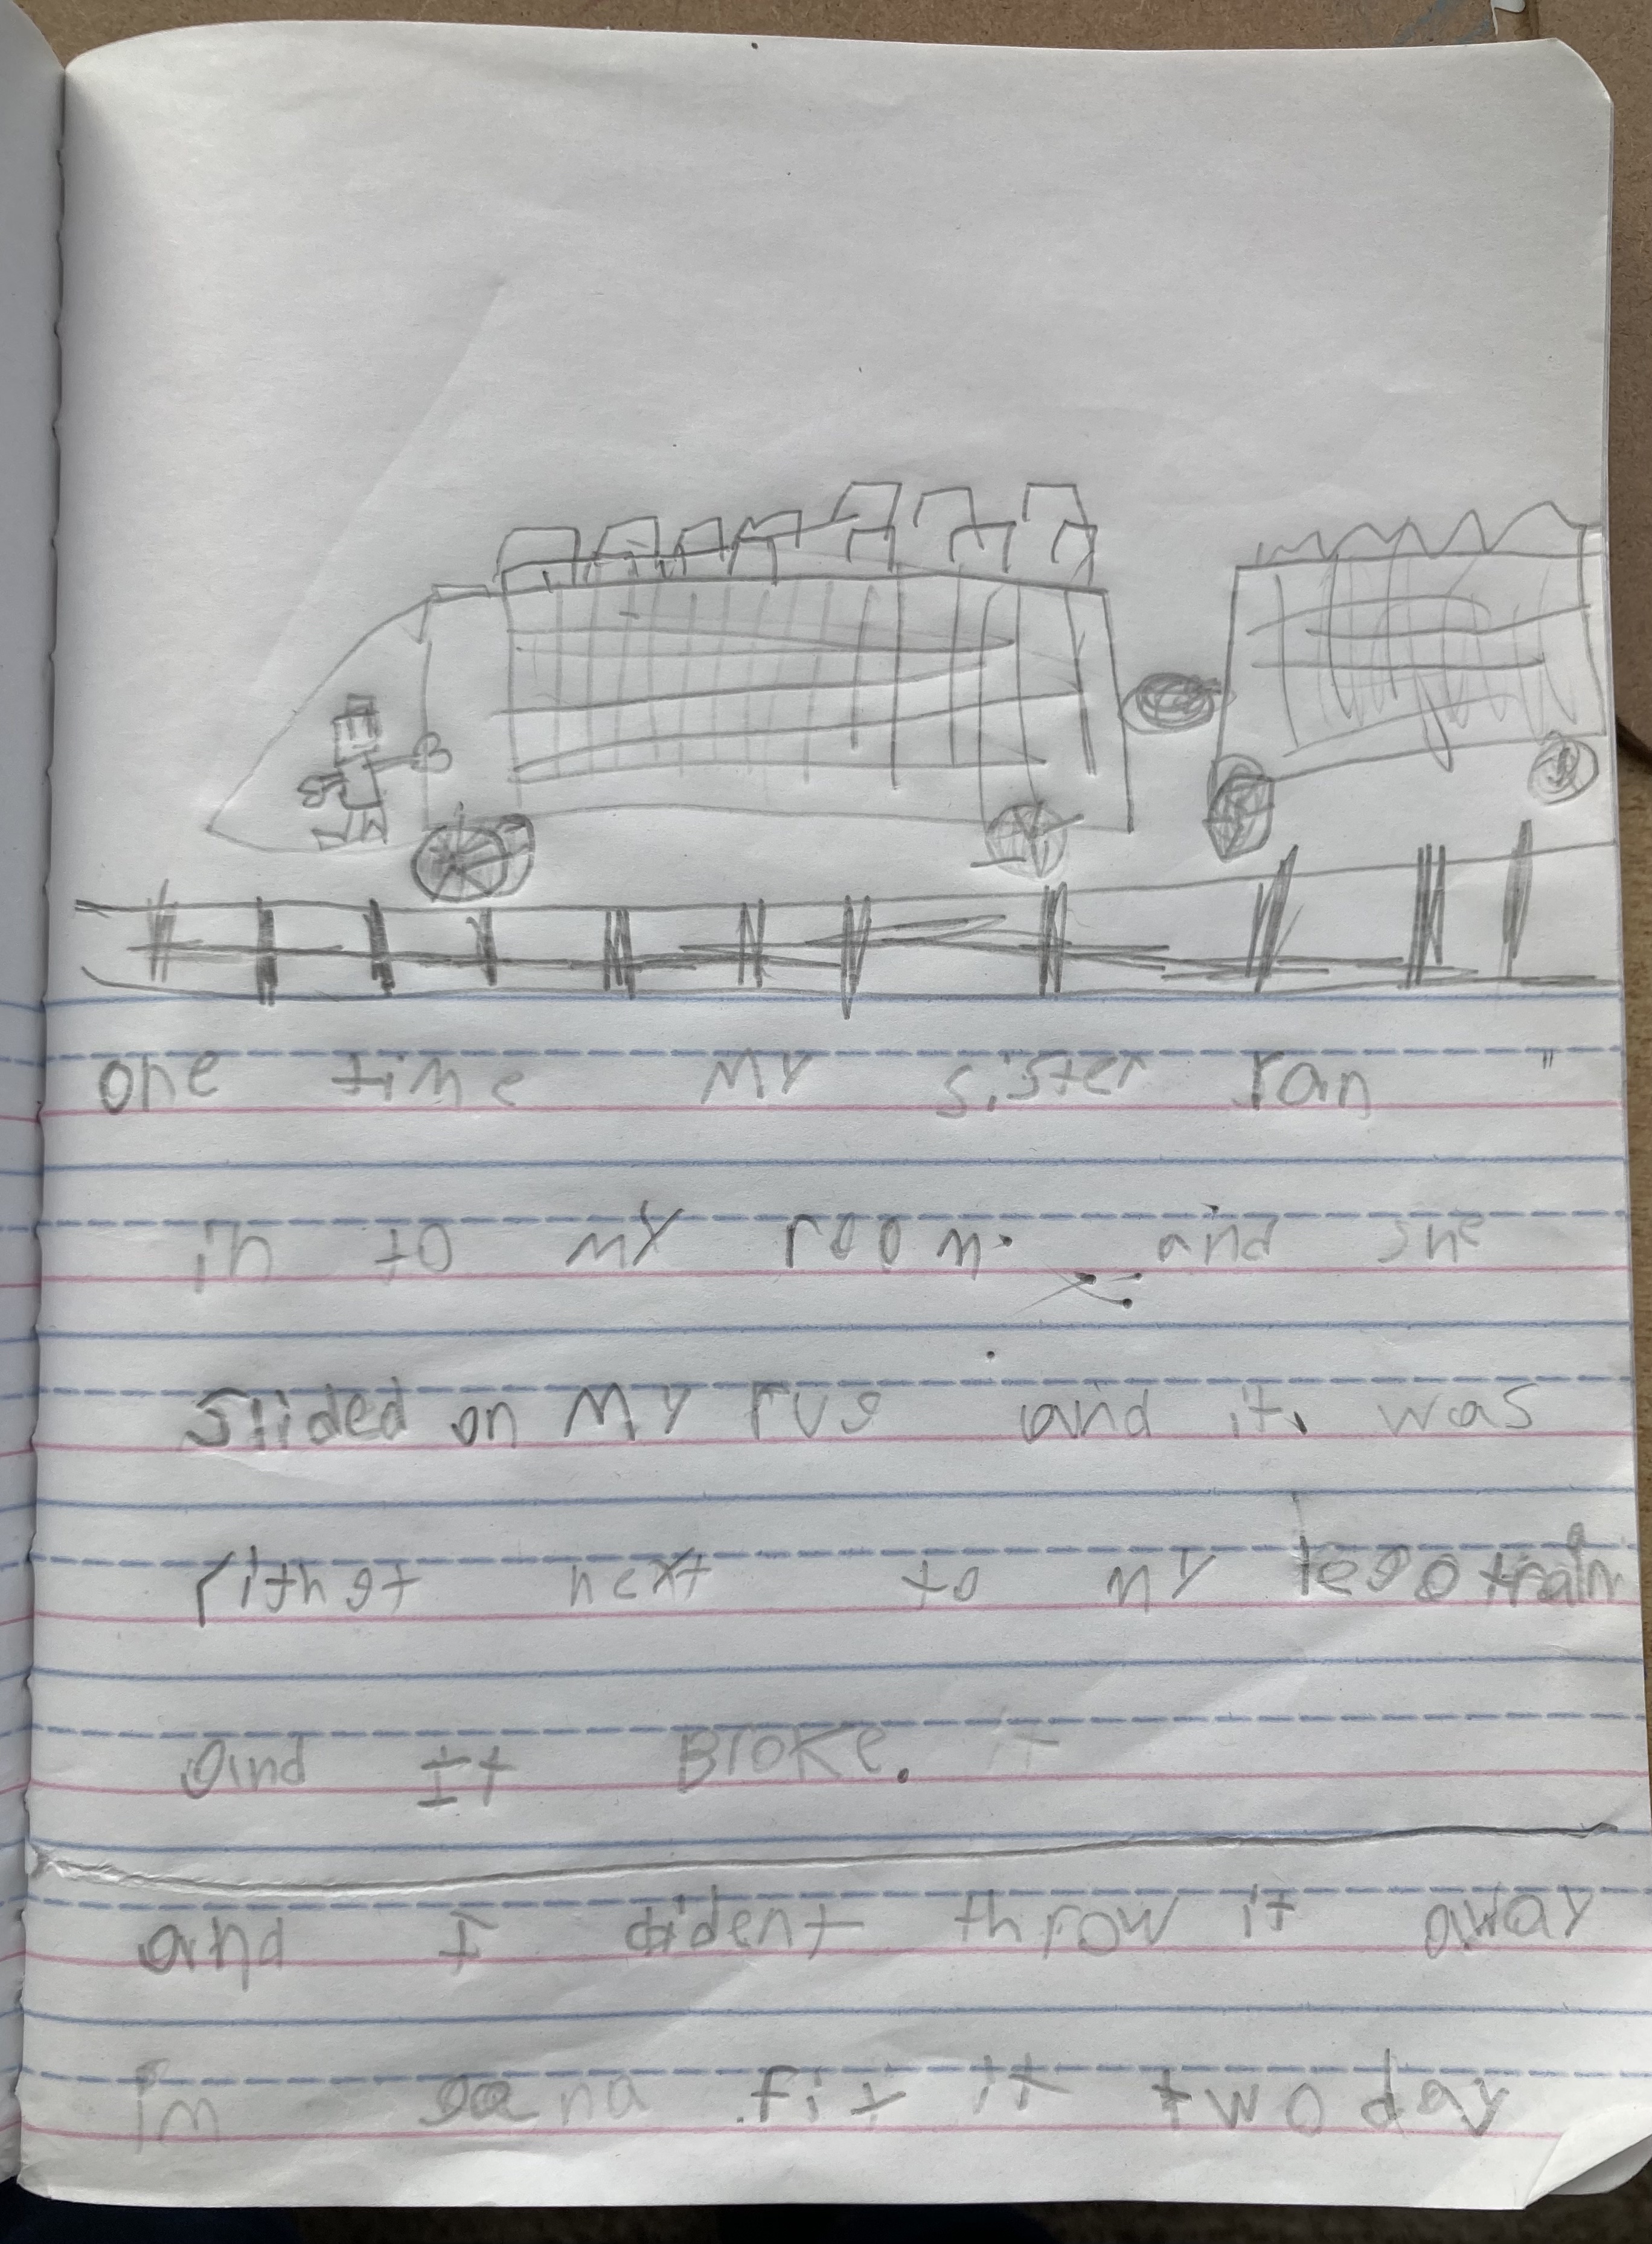 one time my sister ran
in to my room. and she
slided on my rug and it was
rithgt next to my lego train
and It Broke. it
and I dident throw it away
im gana fix it two day